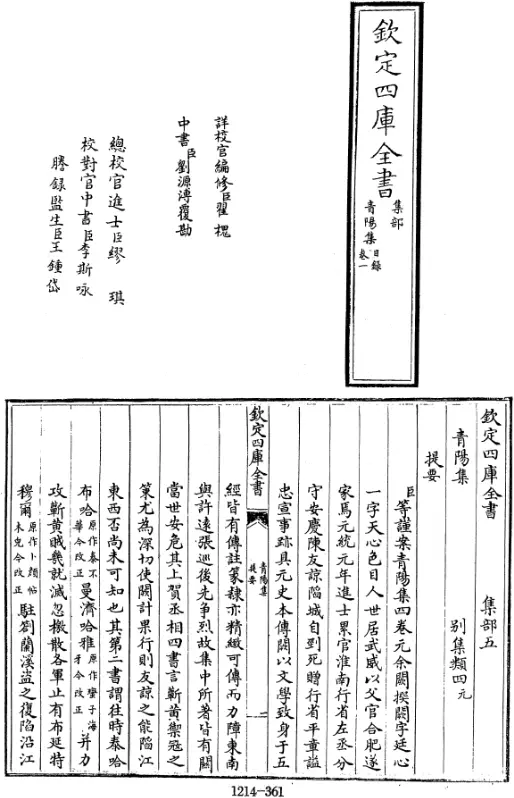 欽定四庫全書
集部
青陽集 目錄 卷一
詳校官編修臣翟槐
中書臣劉源溥覆勘
總校官進士臣繆琪
校對官中書臣李斯咏
謄錄監生臣王鍾岱
欽定四庫全書 集部五
青陽集 別集類四 元
提要
臣等謹案青陽集四卷元余闕撰闕字廷心
一字天心色目人世居武威以父官合肥遂
家焉元統元年進士累官淮南行省左丞分
守安慶陳友諒陷城自刭死贈行省平章謚
忠宣事跡具元史本傳闕以文學致身于五
欽定四庫全書
青陽集
提要
一
經皆有傳註篆隸亦精緻可傳而力障東南
與許遠張巡後先争烈故集中所著皆有關
當世安危其上賀丞相四書言蘄黄禦冦之
策尤為深切使闕計果行則友諒之能陷江
東西否尚未可知也其第二書謂往時泰哈
布哈 原作泰不華今改正 曼濟哈雅 原作蠻子海牙今改正 并力
攻蘄黄賊幾就滅忽檄散各軍止有布延特
穆爾 原作卜顔帖木兒今改正 駐劄蘭溪盜之復陷沿江
1214-361